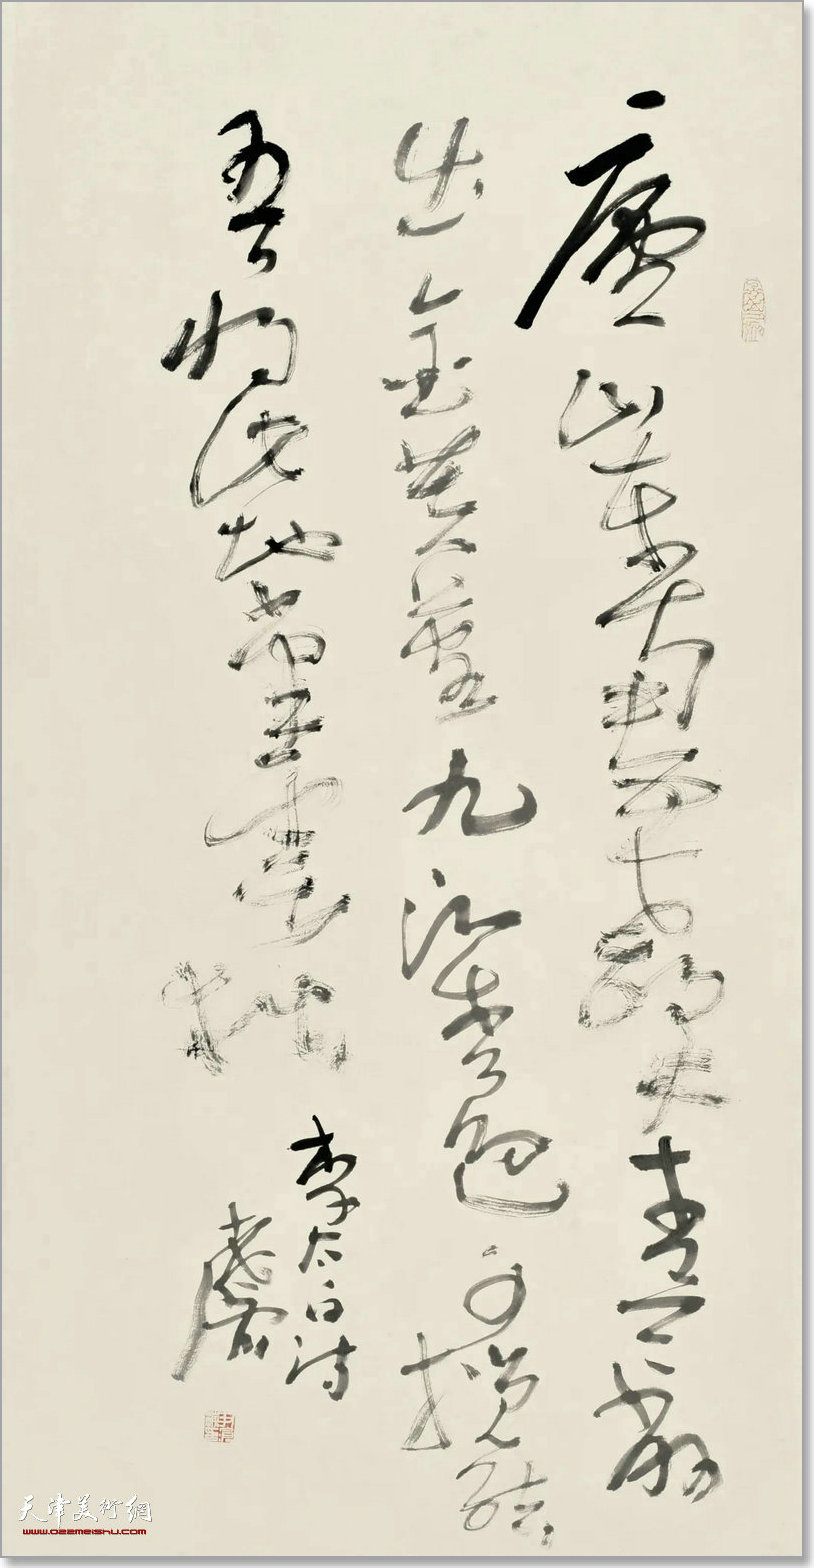 廬山東南五老峰青天削
出金芙蓉九江秀色可攬結
吾將此地巢雲松
李太白詩
天津美術網
www.022meishu.com